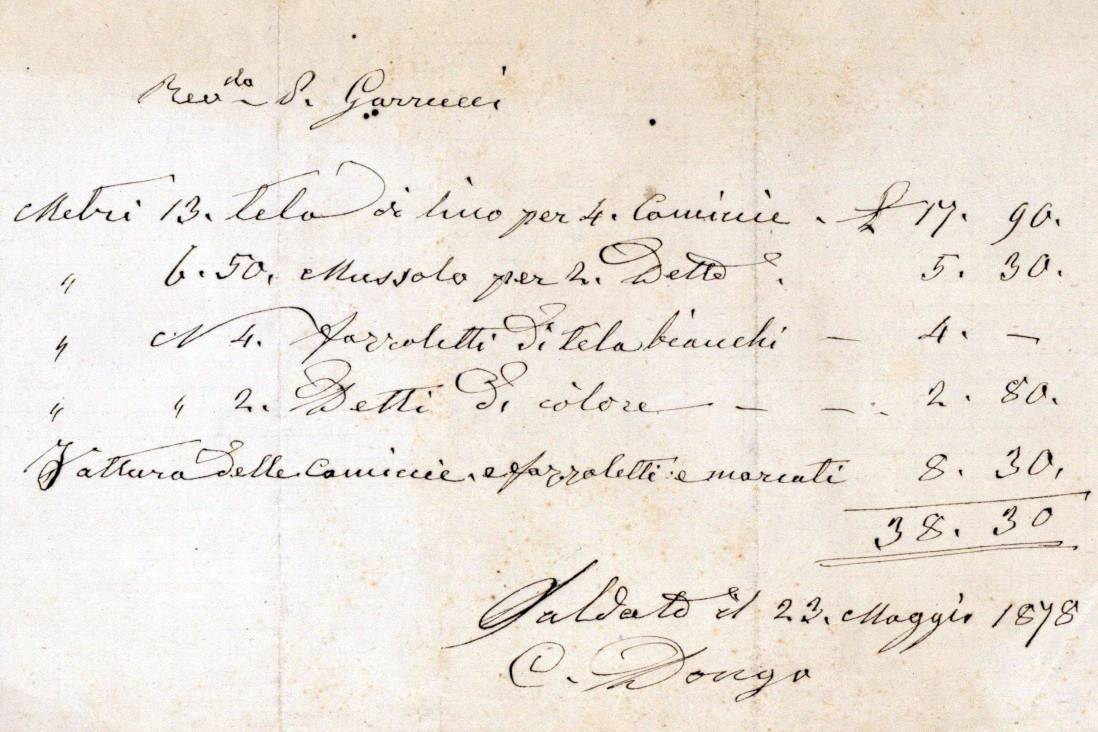 Rev.do P. Garrucci
Metri 13. tela di lino per 4. Camicie . £ 17. 90.
" 6. 50. Mussolo per 2. Dette . 5. 30.
" N 4. fazzoletti di tela bianchi — 4. —
" " 2. Detti di colore — — . 2. 80.
Fattura delle Camicie, e fazzoletti e marcati 8. 30.
38. 30
Saldato il 23. Maggio 1878
C. Dongo